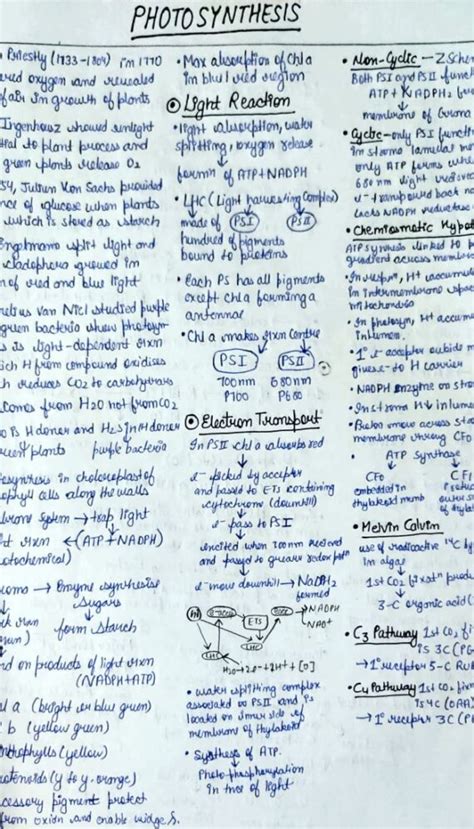 PHOTOSYNTHESIS
Priestly (1733-1804) in 1770
red oxygen and revealed
of air in growth of plants
Ingenhousz showed sunlight
tial to plant process and
green plants release O2
54, Julius Von Sachs provided
nce of glucose when plants
which is stored as starch
Engelmann split light and
cladophora growed in
n of red and blue light
nelius van Niel studied purple
green bacteria show photosyn-
s is light-dependent rxn
ich H from compound oxidises
h reduces CO2 to carbohydrates
comes from H2O not from CO2
O is H donor and H2S is H donor
green plants purple bacteria
tosynthesis in chloroplast of
ophyll cells along the walls
brane system → trap light
t rxn ← (ATP + NADPH)
otochemical)
roma → Enzyme synthesise
sugars
ck rxn
form starch
ed on products of light rxn
(NADPH+ATP)
l a (bright or blue green)
l b (yellow green)
nthophylls (yellow)
rotenoids (y to y. orange)
cessory pigment protect
from oxidn and enable wider
• Max absorption of Chl a
in blue & red region
Light Reaction
• light absorption, water
splitting, oxygen release
↓
formn of ATP+NADPH
• LHC (Light harvesting Complex)
made of PSI PSII
hundred of pigments
bound to proteins
• Each PS has all pigments
except chl a forming a
antennae
• Chl a makes rxn Centre
PSI PSII
700nm 680nm
P700 P680
Electron Transport
In PSII chl a absorbs red
↓
e- picked by acceptor
and passed to ETS containing
cytochrome (downhill)
↓
e- pass to PSI
↓
excited when 700nm red and
and passed to greater redox potn
↓
e- move downhill → NADPH2
formed
ETS
NADPH
NADP+
LHC
LHC
H2O → 2e- + 2H+ + [O]
• water splitting complex
associated to PSII and is
located on inner side of
membrane of thylakoid
• Synthesis of ATP.
Photo-phosphorylation
in pres of light
• Non-Cyclic — Z Schem
Both PSI and PSII func
ATP + NADPH2 for
↓
membrane of Grana
• Cyclic - only PSI functi
in stroma lamellae
only ATP forms
680nm light
• e- transport back
lacks NADP reductase
• Chemiosmotic Hypot
ATP synthesis linked to
gradient across membra
• In respirn, H+ accumu
in intermembrane space
mitochondria
• In photosyn, H+ accum
in lumen.
• 1° e- acceptor outside m
gives e- to H carrier
• NADPH enzyme on str
• In stroma H↓ in lume
• Proton move across
membrane through CF0
• ATP synthase
CF0 CF1
embedded in
thylakoid memb
• Melvin Calvin
use of radioactive 14C
in algae
1st CO2 fixatn produ
↓
3-C organic acid
• C3 Pathway 1st CO2 fi
is 3C (PG
→ 1° acceptor 5-C Ru
• C4 Pathway 1st CO2 fix
is 4C (OAA)
→ 1° acceptor 3C (P